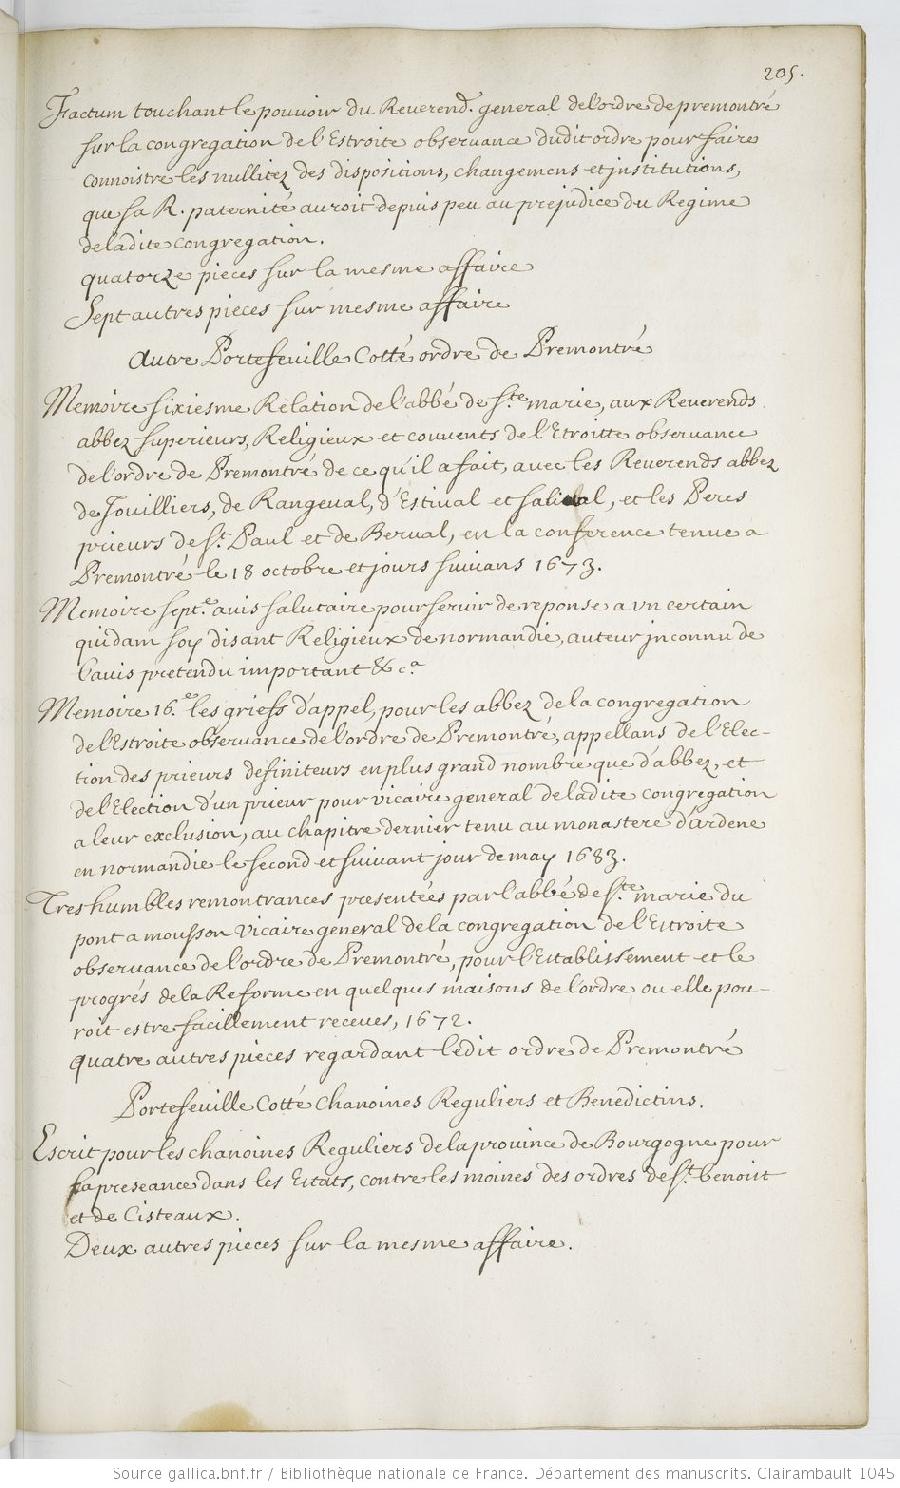 205.
Factum touchant le pouvoir du Reverend. general de l'ordre de premontré
sur la congregation de l'Estroite observance dudit ordre pour faire
connoistre les nullitez des dispositions, changemens et institutions,
que sa R. paternité auroit depuis peu au prejudice du Regime
de ladite congregation.
quatorze pieces sur la mesme affaire
Sept autres pieces sur mesme affaire
Autre Portefeuille Cotté ordre de Premontré
Memoire sixiesme Relation de l'abbé de Ste. marie, aux Reverends
abbez superieurs, Religieux et couvents de l'Etroitte observance
de l'ordre de Premontré de ce qu'il a fait, avec les Reverends abbez
de Jouilliers, de Rangeval, d'Estival et , et les Peres
prieurs de St. Paul et de Berval, en la conference tenue a
Premontré le 18 octobre et jours suivans 1673.
Memoire sept.e avis salutaire pour servir de reponse a un certain
quidam soy disant Religieux de normandie, auteur inconnu de
l'avis pretendu important &c.a
Memoire 16.e les griefs d'appel, pour les abbez de la congregation
de l'Estroite observance de l'ordre de Premontré, appellans de l'Elec-
tion des prieurs definiteurs en plus grand nombre que d'abbez, et
de l'Election d'un prieur pour vicaire general de ladite congregation
a leur exclusion, au chapitre dernier tenu au monastere d'ardene
en normandie le second et suivant jour de may 1683.
Tres humbles remontrances presentées par l'abbé de Ste. marie du
pont a mousson vicaire general de la congregation de l'Estroite
observance de l'ordre de Premontré, pour l'Establissement et le
progrés de la Reforme en quelques maisons de l'ordre ou elle pou-
roit estre facillement receues, 1672.
quatre autres pieces regardant ledit ordre de Premontré
Portefeuille Cotté Chanoines Reguliers et Benedictins.
Escrit pour les chanoines Reguliers de la province de Bourgogne pour
la preseance dans les Estats, contre les moines des ordres de St. benoist
et de Cisteaux.
Deux autres pieces sur la mesme affaire.
Source gallica.bnf.fr / Bibliothèque nationale de France. Département des manuscrits. Clairambault 1045